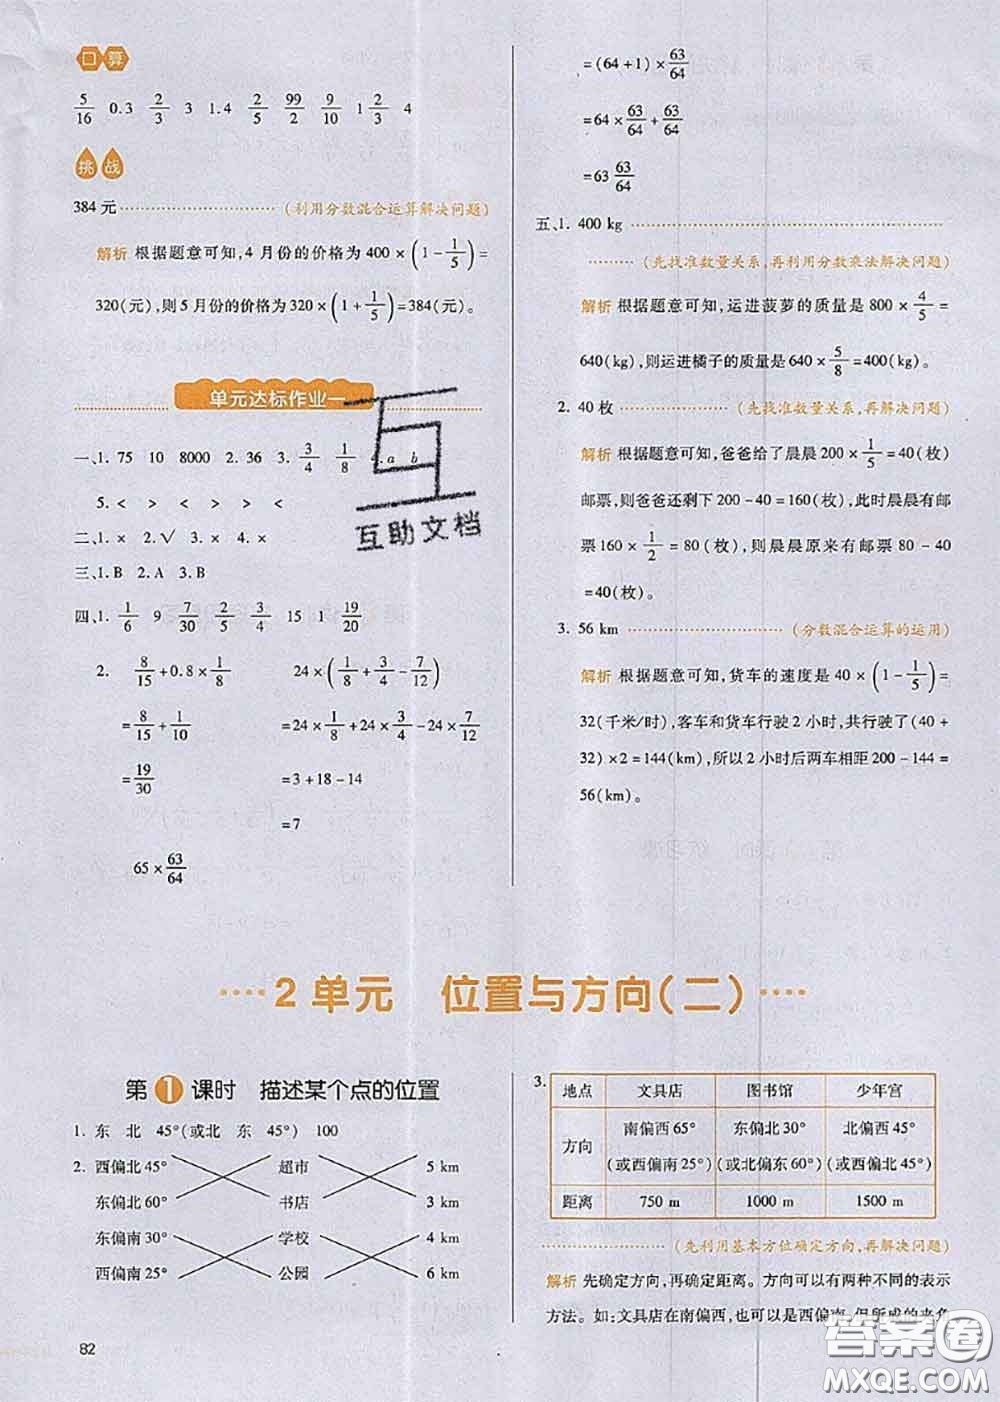 口算
5/16 0.3 2/3 3 1.4 2/5 99/2 9/10 1 2/3 4
挑战
384元 ………………(利用分数混合运算解决问题)
解析 根据题意可知,4月份的价格为400×(1-1/5)=
320(元),则5月份的价格为320×(1+1/5)=384(元)。
单元达标作业一
一、1. 75 10 8000 2. 36 3. 3/4 1/8 4. a b
5. < > < > > <
二、1. × 2. √ 3. × 4. ×
三、1. B 2. A 3. B
四、1. 1/6 9 7/30 2/5 3/4 15 1 19/20
2. 8/15+0.8×1/8
=8/15+1/10
=19/30
24×(1/8+3/4-7/12)
=24×1/8+24×3/4-24×7/12
=3+18-14
=7
65×63/64
=(64+1)×63/64
=64×63/64+63/64
=63 63/64
五、1. 400 kg ………………
………(先找准数量关系,再利用分数乘法解决问题)
解析 根据题意可知,运进菠萝的质量是800×4/5=
640(kg),则运进橘子的质量是640×5/8=400(kg)。
2. 40枚 ………(先找准数量关系,再解决问题)
解析 根据题意可知,爸爸给了晨晨200×1/5=40(枚)
邮票,则爸爸还剩下200-40=160(枚),此时晨晨有邮
票160×1/2=80(枚),则晨晨原来有邮票80-40
=40(枚)。
3. 56 km ………………(分数混合运算的运用)
解析 根据题意可知,货车的速度是40×(1-1/5)=
32(千米/时),客车和货车行驶2小时,共行驶了(40+
32)×2=144(km),所以2小时后两车相距200-144=
56(km)。
互助文档
2单元 位置与方向(二)
第1课时 描述某个点的位置
1. 东 北 45°(或北 东 45°) 100
2. 西偏北45° 超市 5 km
东偏北60° 书店 3 km
东偏南30° 学校 4 km
西偏南25° 公园 6 km
3. 地点 文具店 图书馆 少年宫
方向 南偏西65°(或西偏南25°) 东偏北30°(或北偏东60°) 北偏西45°(或西偏北45°)
距离 750 m 1000 m 1500 m
………(先利用基本方位确定方向,再解决问题)
解析 先确定方向,再确定距离。方向可以有两种不同的表示
方法。如:文具店在南偏西,也可以是西偏南,但所成的夹角
82
答案圈
MXQE.COM